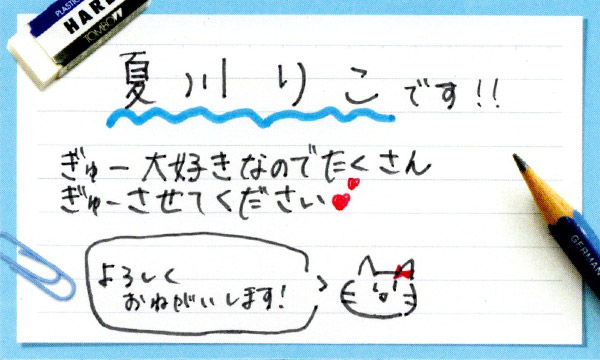 PLASTIC
HARD
TOMBOW
夏川りこです!!
ぎゅー大好きなのでたくさん
ぎゅーさせてください
よろしく
おねがいします!
GERMANY